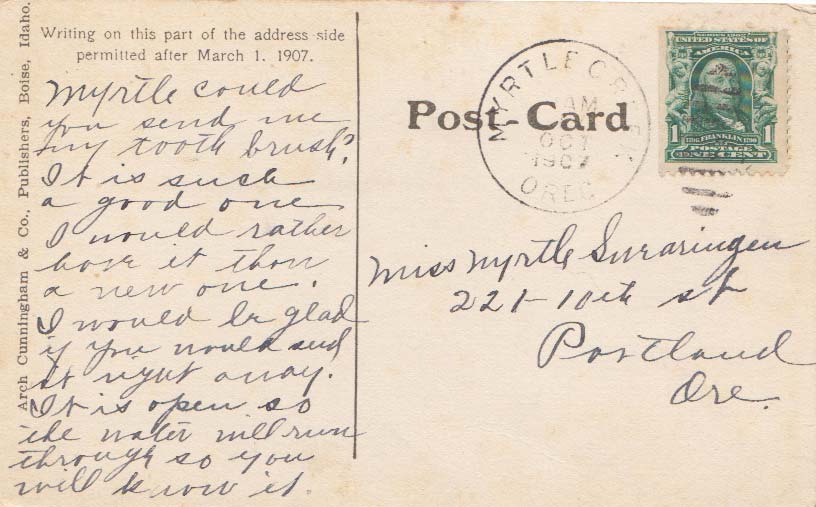 Writing on this part of the address side
permitted after March 1. 1907.
Arch Cunningham & Co., Publishers, Boise, Idaho.
Myrtle could
you send me
my tooth brush?
It is such
a good one
I would rather
have it than
a new one.
I would be glad
if you would send
it right away.
It is open so
the water will run
through so you
will know it.
Post-Card
MYRTLE CREEK
AM
OCT
1907
OREG
SERIES 1902
UNITED STATES OF
AMERICA
1 1706 FRANKLIN 1790 1
POSTAGE
ONE CENT
Miss Myrtle Swearingen
221-10th st
Portland
Ore.